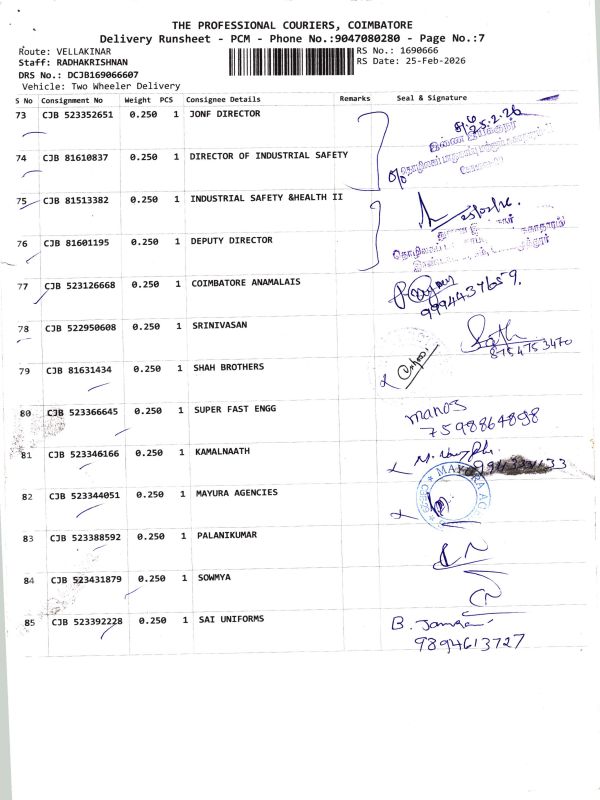 THE PROFESSIONAL COURIERS, COIMBATORE
Delivery Runsheet - PCM - Phone No.:9047080280 - Page No.:7
Route: VELLAKINAR
Staff: RADHAKRISHNAN
DRS No.: DCJB169066607
Vehicle: Two Wheeler Delivery
RS No.: 1690666
RS Date: 25-Feb-2026
S No Consignment No Weight PCS Consignee Details Remarks Seal & Signature
73 CJB 523352651 0.250 1 JONF DIRECTOR
25.2.26
74 CJB 81610837 0.250 1 DIRECTOR OF INDUSTRIAL SAFETY
75 CJB 81513382 0.250 1 INDUSTRIAL SAFETY &HEALTH II
76 CJB 81601195 0.250 1 DEPUTY DIRECTOR
77 CJB 523126668 0.250 1 COIMBATORE ANAMALAIS
9994437659.
78 CJB 522950608 0.250 1 SRINIVASAN
8754753470
79 CJB 81631434 0.250 1 SHAH BROTHERS
80 CJB 523366645 0.250 1 SUPER FAST ENGG
manos
7598864898
81 CJB 523346166 0.250 1 KAMALNAATH
82 CJB 523344051 0.250 1 MAYURA AGENCIES
83 CJB 523388592 0.250 1 PALANIKUMAR
84 CJB 523431879 0.250 1 SOWMYA
85 CJB 523392228 0.250 1 SAI UNIFORMS
9894613727